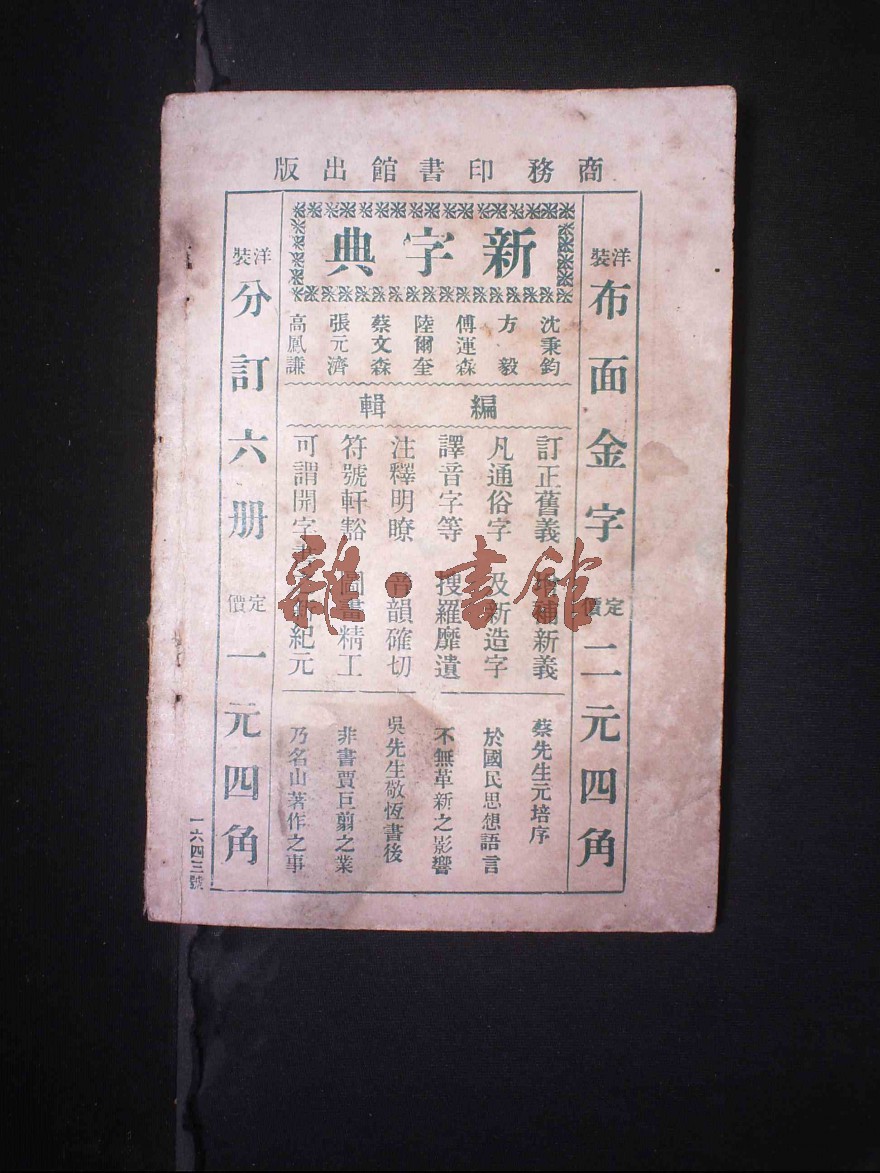 商務印書館出版
洋裝
布面金字
定價
二元四角
新字典
沈秉鈞
方毅
傅運森
陸爾奎
蔡文森
張元濟
高鳳謙
編輯
訂正舊義 增補新義
凡通俗字 及新造字
譯音字等 搜羅靡遺
注釋明瞭 音韻確切
符號軒豁 圖畫精工
可謂開字書 紀元
蔡先生元培序
於國民思想語言
不無革新之影響
吳先生敬恆書後
非書賈巨翦之業
乃名山著作之事
洋裝
分訂六册
定價
一元四角
一六四三號
雜·書館